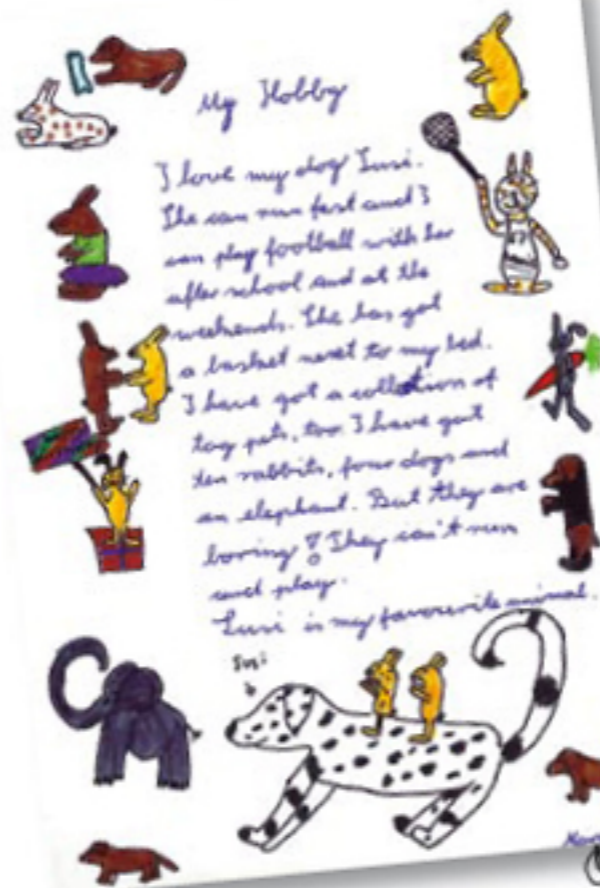 My Hobby
I love my dog Susi.
She can run fast and I
can play football with her
after school and at the
weekends. She has got
a basket next to my bed.
I have got a collection of
toy pets, too. I have got
ten rabbits, four dogs and
an elephant. But they are
boring! They can't run
and play.
Susi is my favourite animal.
Susi